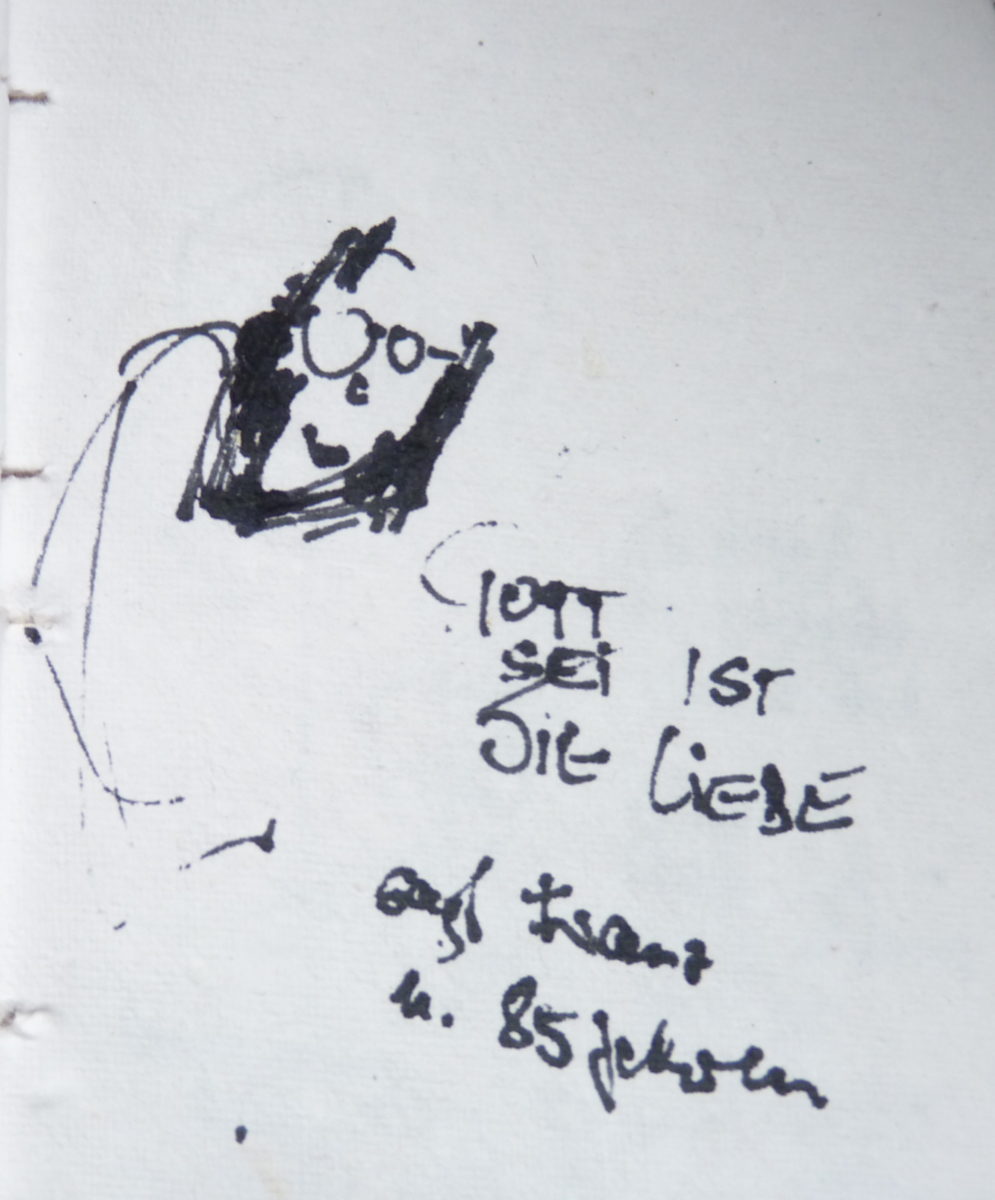 GOTT
SEI IST
DIE LIEBE
sagt Franz
n. 85 Jahren